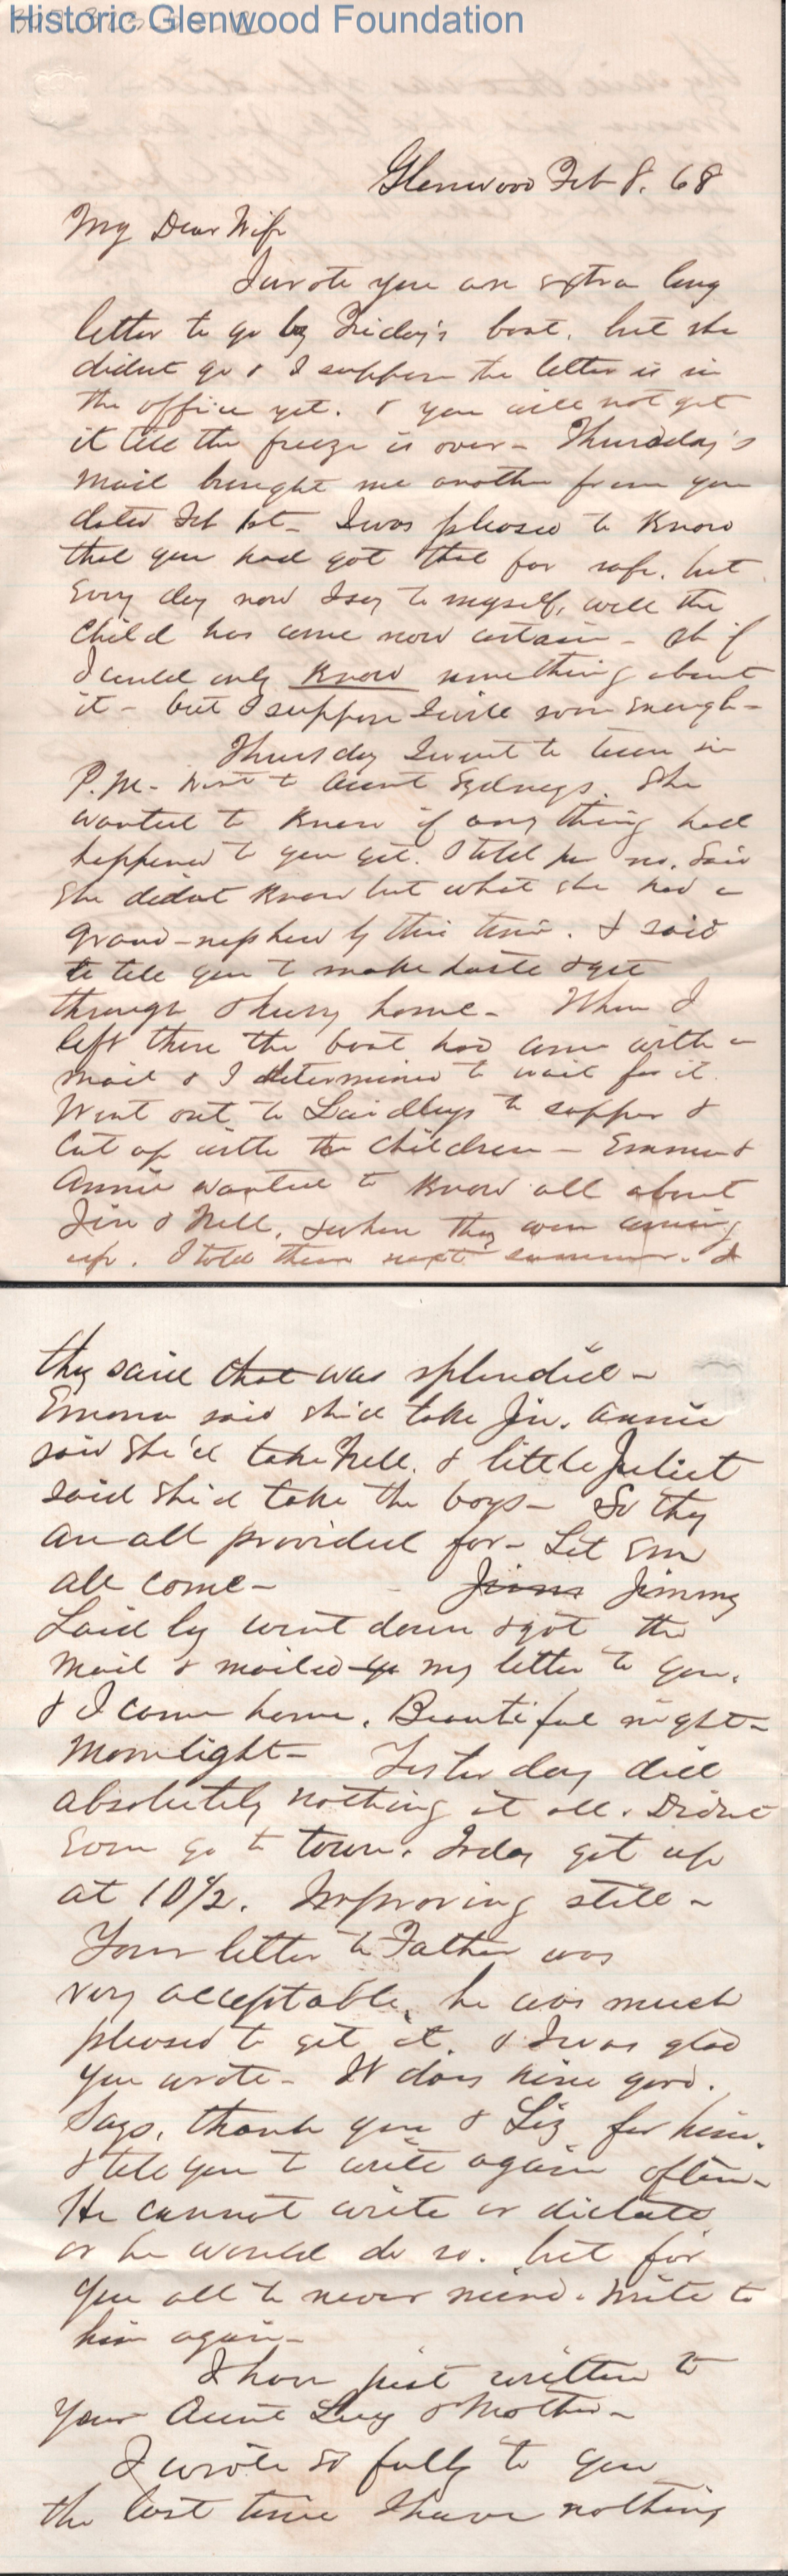 Historic Glenwood Foundation
Glenwood Feb 8. 68
My Dear Wife
I wrote you an extra long
letter to go by Friday's boat, but she
didnt go & I suppose the letter is in
the office yet. & you will not get
it till the freeze is over - Thursday's
mail brought me another from you
dated Feb 1st - I was pleased to know
that you had got that far safe. but
Every day now I say to myself, well the
child has come now certain - oh if
I could only know something about
it - but I suppose I will soon Enough -
Thursday I went to town in
P.M. - went to Aunt Sydneys. She
wanted to know if any thing had
happened to you yet. I told her no. Said
She didnt know but what she had a
grand-nephew by this time. & said
to tell you to make haste & get
through & hurry home - When I
left there the boat had come with a
mail & I determined to wait for it.
Went out to Laidleys to supper &
Cut up with the children - Emma &
Annie wanted to know all about
Jin & Nell, & when they were coming
up. I told them next summer. &
they said that was splendid -
Emma said she'd take Jin. Annie
said she'd take Nell. & little Juliet
said she'd take the boys - So they
are all provided for - Let Em
all come - Jimm Jimmy
Laidley went down & got the
mail & mailed yo my letter to you.
& I came home. Beautiful night -
Moonlight - Yesterday did
absolutely nothing at all. Didnt
Even go to town. Today got up
at 10 1/2. Improving still -
Your letter to Father was
very acceptable, he was much
pleased to get it. & I was glad
you wrote - It does him good.
Says, thank you & Liz for him.
& tell you to write again often -
He cannot write or dictate
or he would do so. but for
you all to never mind. write to
him again -
I have just written to
your Aunt Lucy & Mother -
I wrote so fully to you
the last time I have nothing